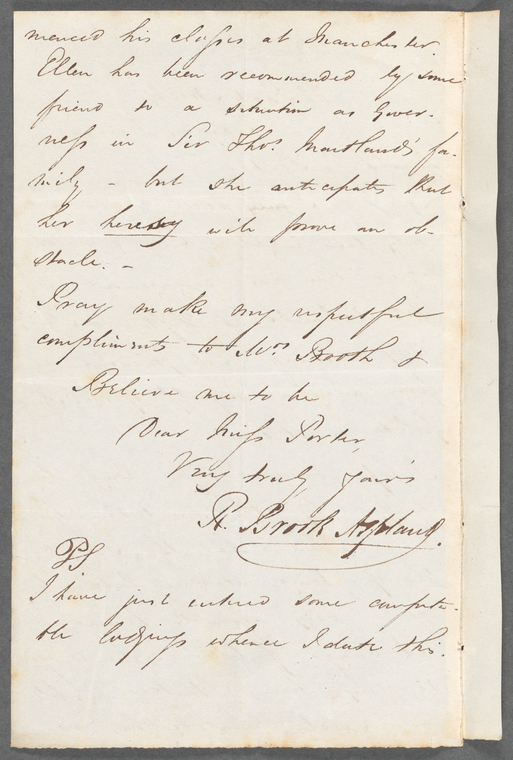 menced his classes at Manchester.
Ellen has been recommended by some
friend to a situation as Gover-
ness in Sir Thos. Maitland's fa-
mily - but she anticipates that
her heresy will prove an ob-
stacle. -
Pray make my respectful
compliments to Mrs Booth &
Believe me to be
Dear Miss Porter,
Very truly yours
R. Brook Aspland.
PS
I have just entered some comforta-
ble lodgings whence I date this.